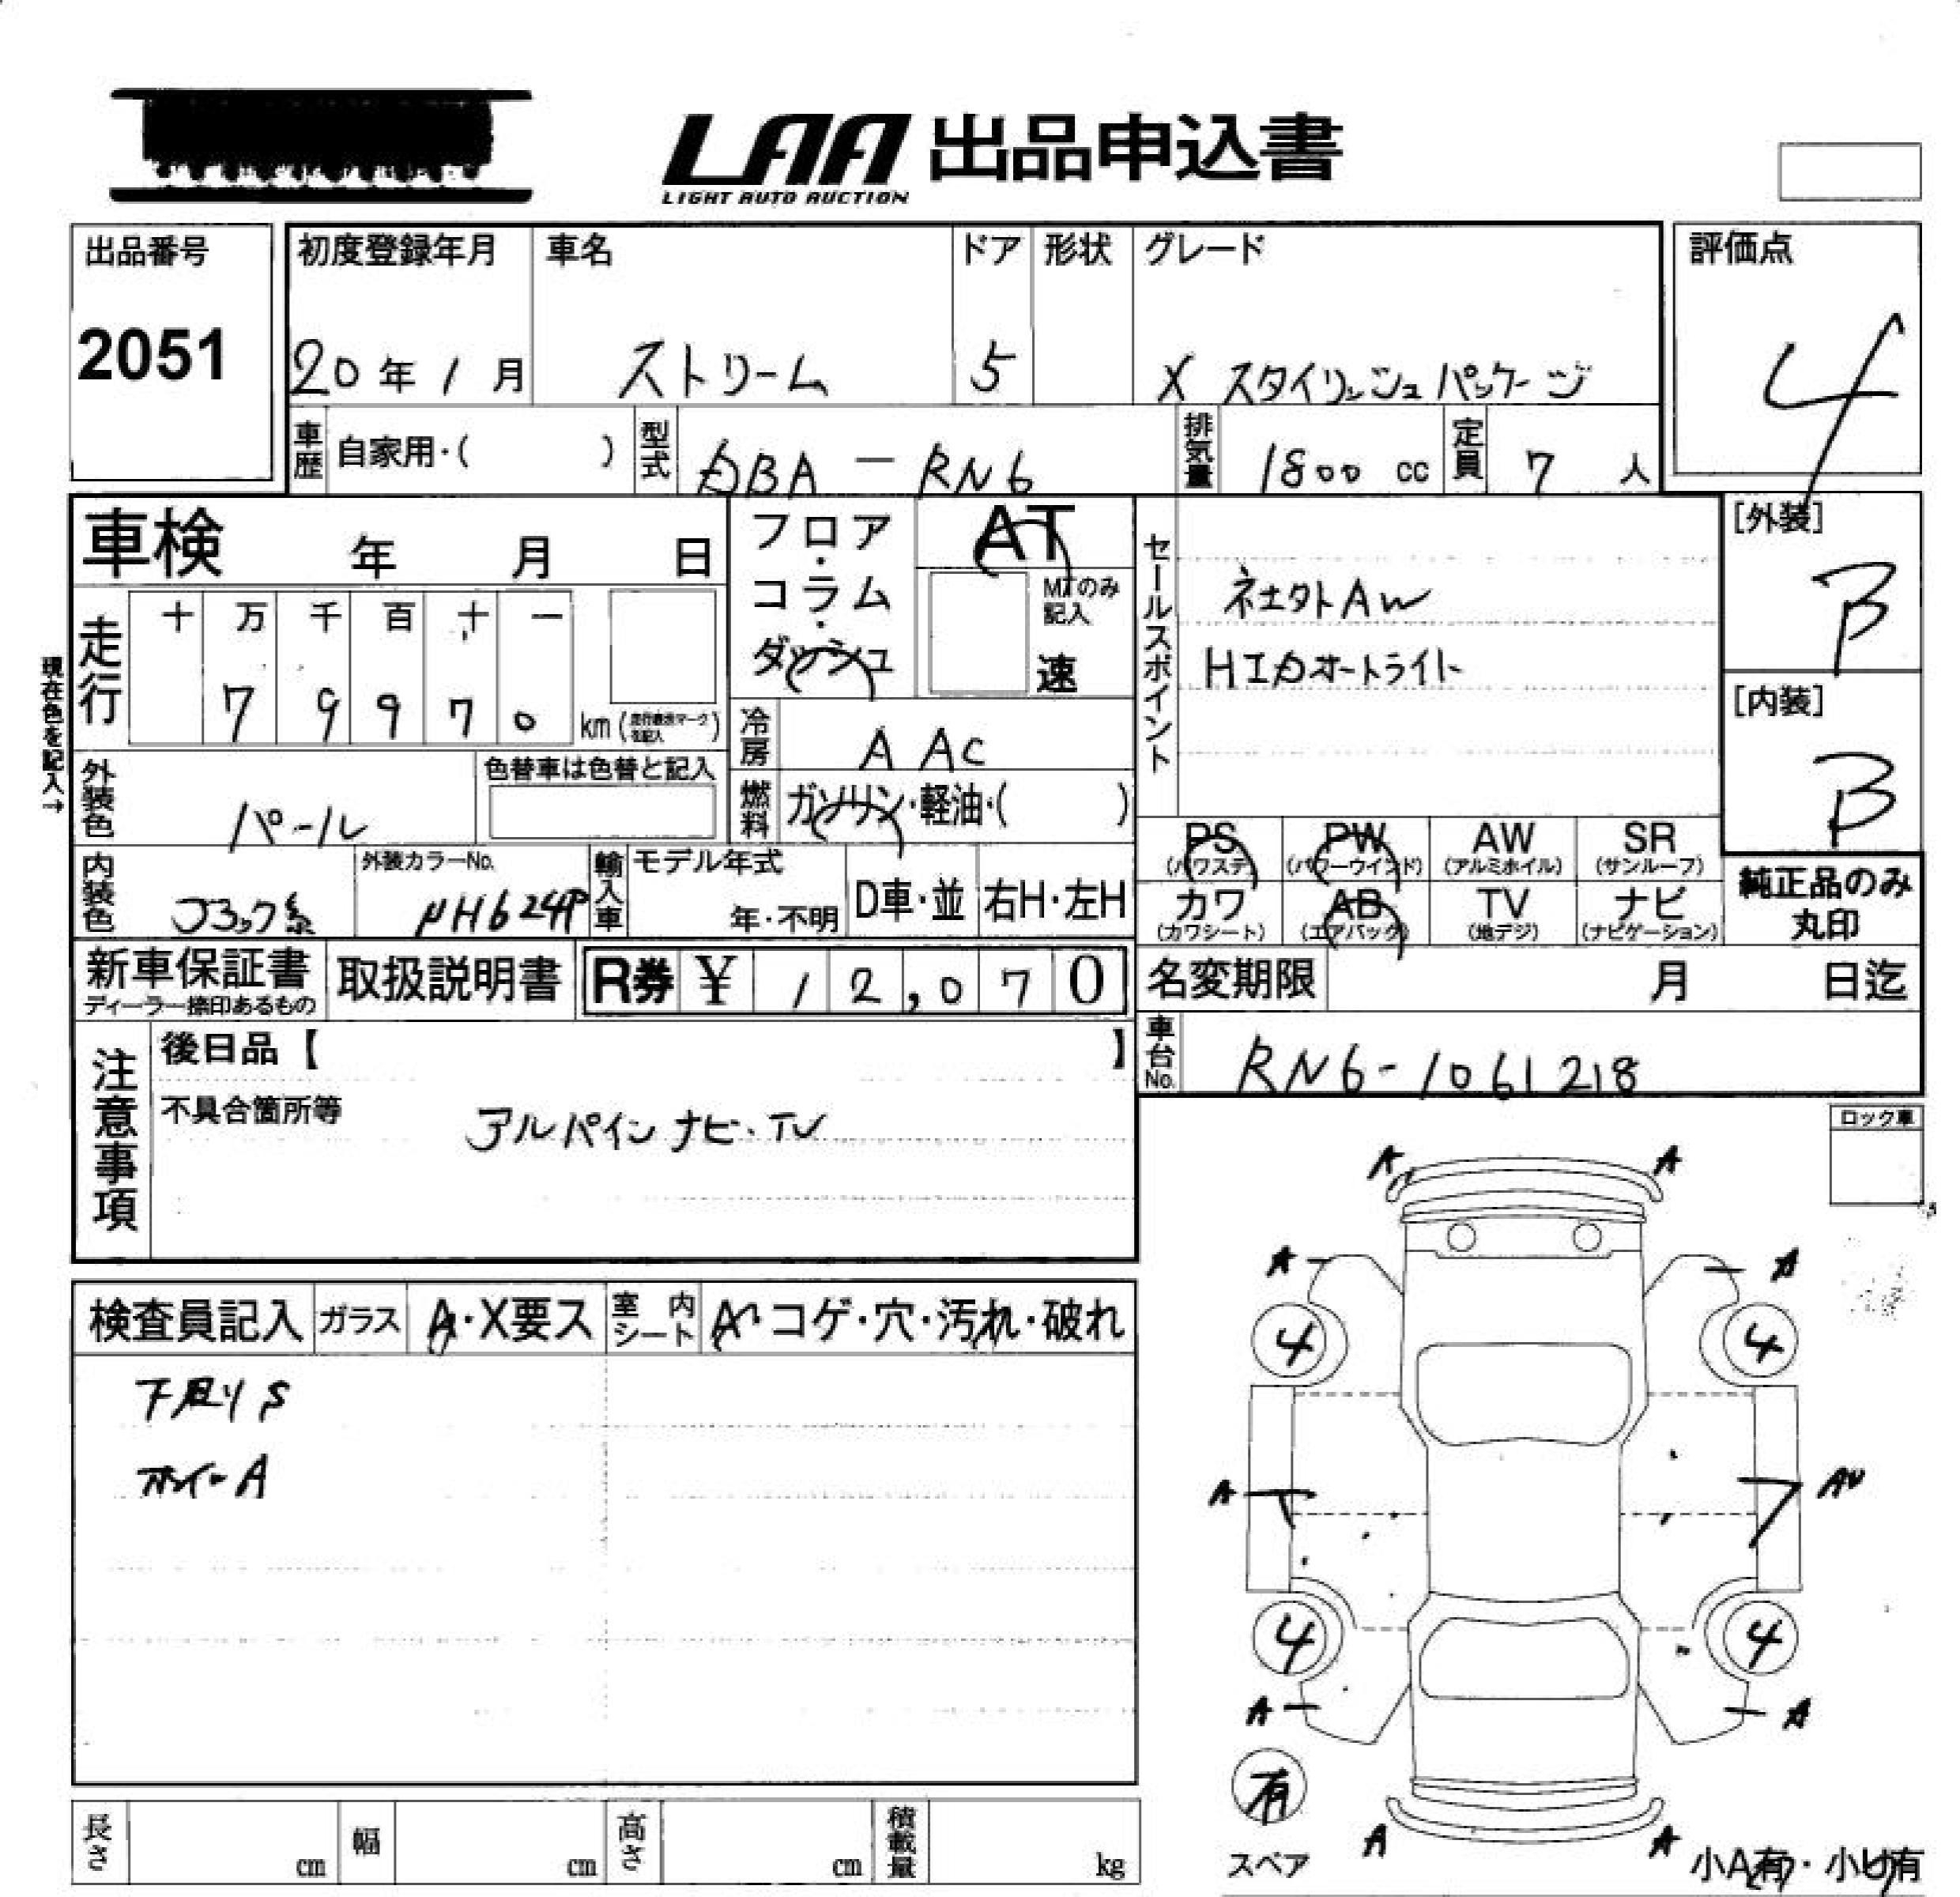 LAA 出品申込書
LIGHT AUTO AUCTION
出品番号 初度登録年月 車名 ドア 形状 グレード 評価点
2051 20年1月 ストリーム 5 X スタイリッシュパッケージ 4
車歴 自家用・( ) 型式 DBA-RN6 排気量 1800 cc 定員 7 人
車検 年 月 日
フロア・コラム・ダッシュ
AT
MTのみ記入
速
セールスポイント
社外AW
HIDオートライト
[外装]
B
[内装]
B
現在色を記入→
走行 十 万 千 百 十 一
7 9 9 7 0 km
冷房 A AC
外装色 パール
色替車は色替と記入
燃料 ガソリン・軽油・( )
PS AW SR PW
(パワステ) (パワーウインド) (アルミホイル) (サンルーフ)
カワ AB TV ナビ
(カワシート) (エアバック) (地デジ) (ナビゲーション)
純正品のみ
丸印
内装色 ブラック系
外装カラーNo. NH624P
輸入車 モデル年式 年・不明 D車・並 右H・左H
新車保証書 取扱説明書 R券 ¥ 12,070
ディーラー捺印あるもの
名変期限 月 日迄
車台No. RN6-1061218
注意事項
後日品【 】
不具合箇所等
アルパイン ナビ・TV
ロック車
検査員記入 ガラス A・X要ス 室内シート A・コゲ・穴・汚れ・破れ
下廻りS
ホイールA
A A
A A
4 4
A AU
4 4
A A
有
スペア
A A
小A有・小U有
長さ cm 幅 cm 高さ cm 積載量 kg